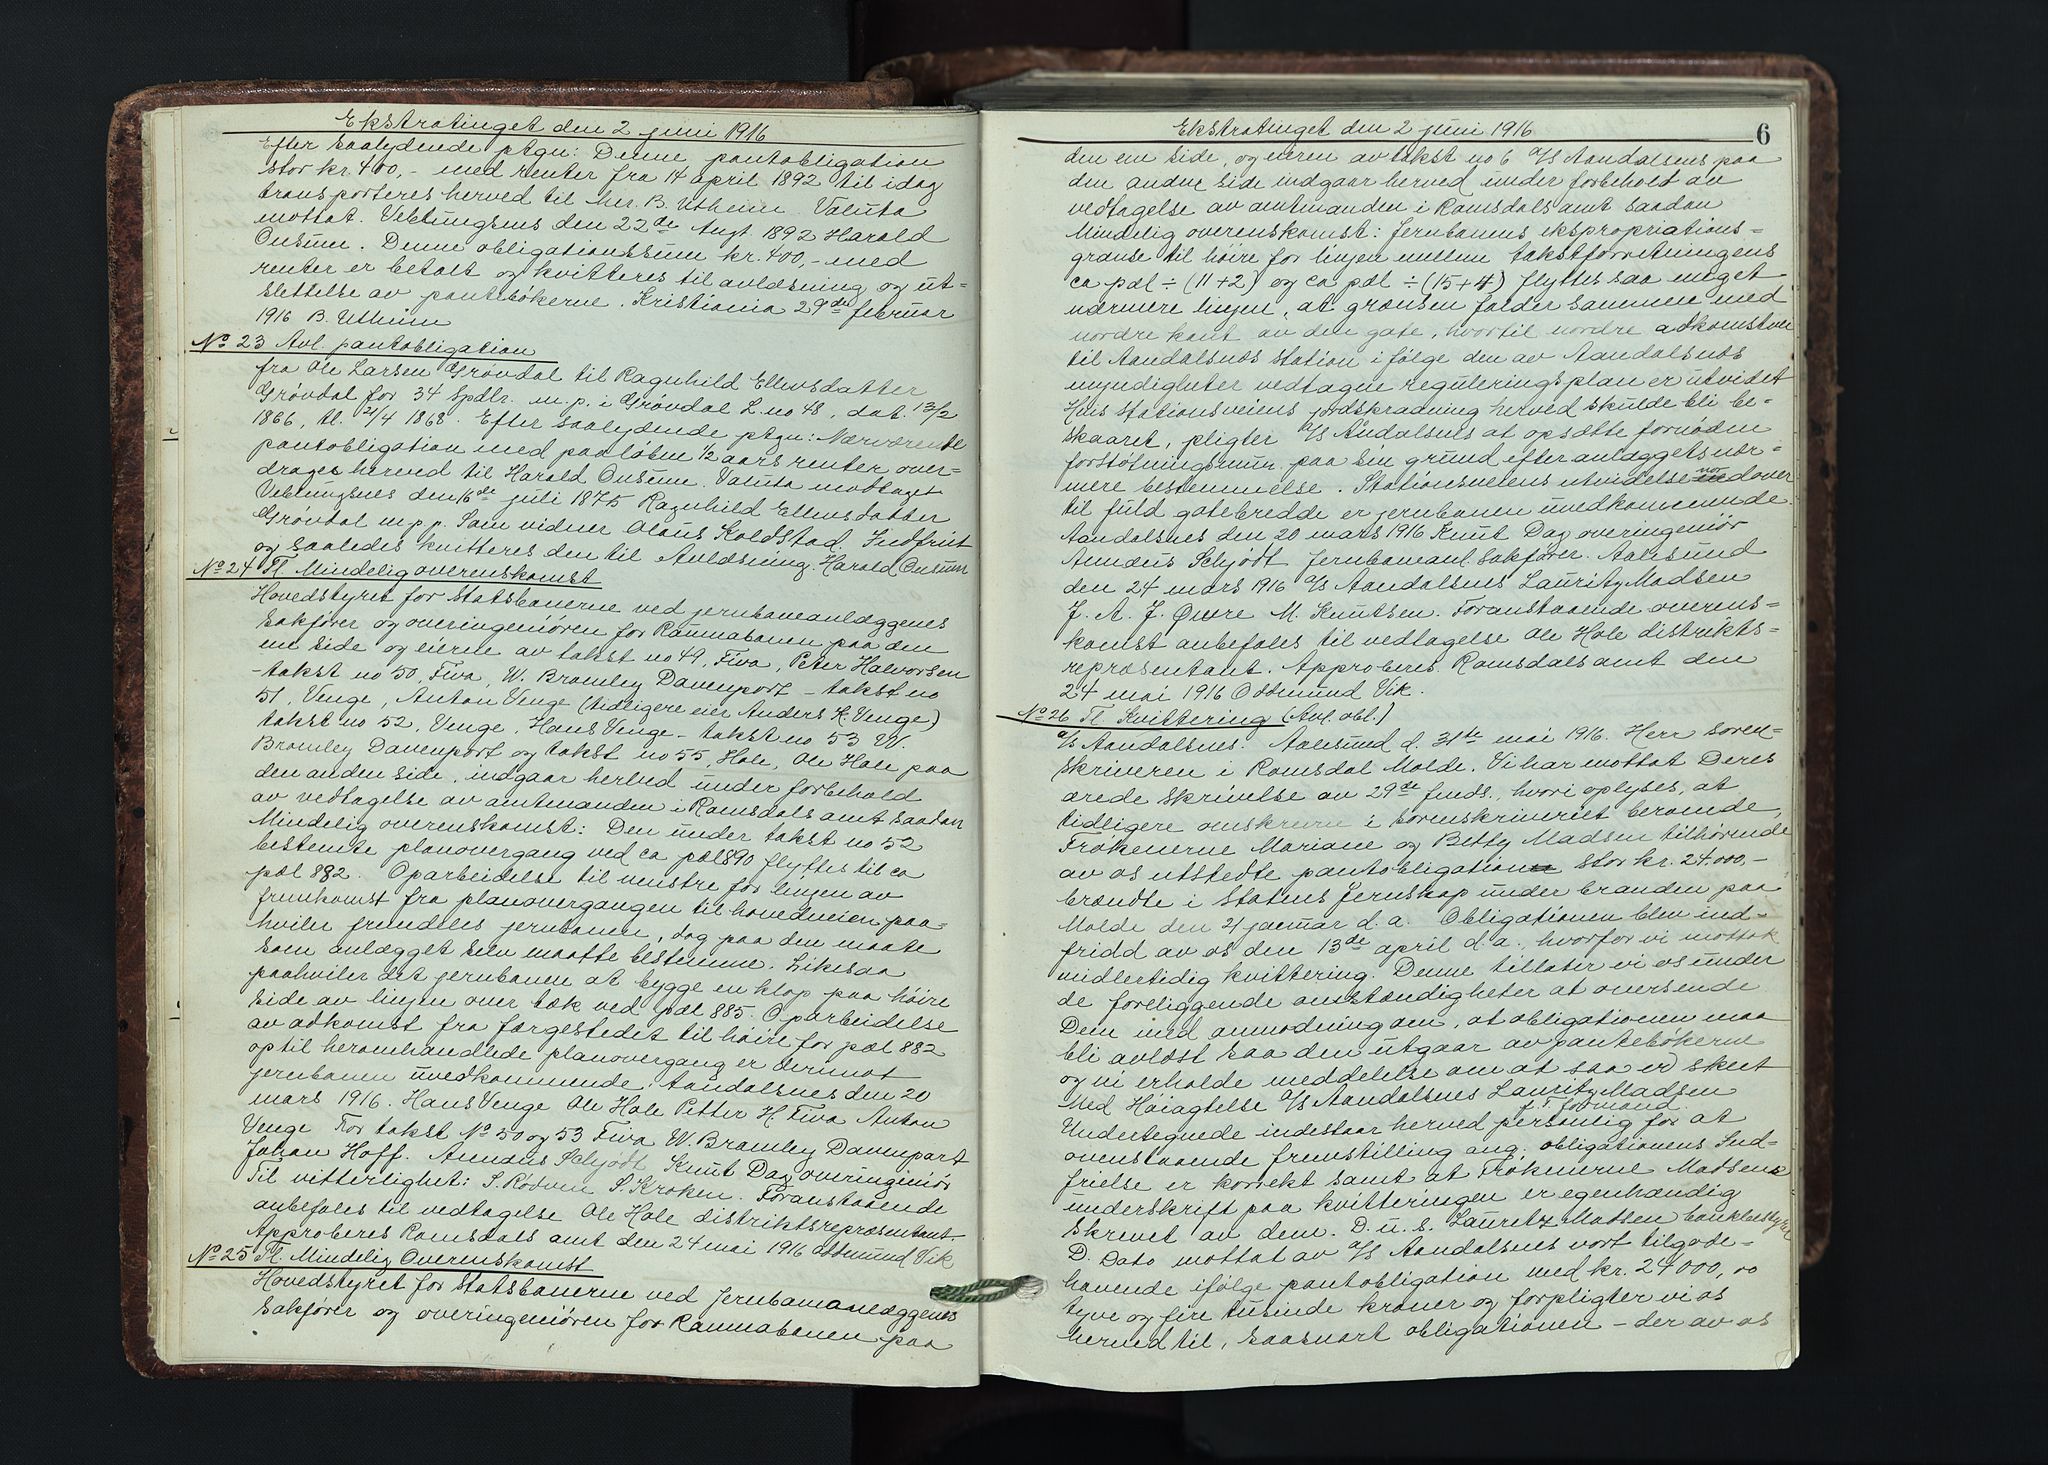 Ekstratinget den 2 juni 1916
Efter saalydende ptgn: Denne pantobligation
stor kr. 400,- med renter fra 14 april 1892 til idag
transporteres herved til her. B. Utheim. Valuta
mottat. Veblungsnes den 22de Augt 1892 Harald
Onsum. Denne obligationssum kr. 400,- med
renter er betalt og kvitteres til avlæsning og ut-
slettelse av pantebökerne. Kristiania 29de februar
1916 B. Utheim
No 23 Avl. pantobligation
fra Ole Larsen Grövdal til Ragnhild Ellensdatter
Grövdal for 34 Spdlr. m.p. i Grövdal L. no 48, dat. 13/2
1866, tl. 21/4 1868. Efter saalydende ptgn: Nærværende
pantobligation med paalöbne 1/2 aars renter over-
drages herved til Harald Onsum. Valuta modtaget
Veblungsnes den 16de juli 1875 Ragnhild Ellensdatter
Grövdal m.p.p. Som vidner Olaus Koldstad Indfriet
og saaledes kvitteres den til Avlæsning. Harald Onsum
No 24 Tl. Mindelig overenskomst
Hovedstyret for Statsbanerne ved jernbaneanlæggenes
sakförer og overingeniören for Raumabanen paa den
ene side og eierne av takst no 49, Fiva, Peter Halvorsen
-takst no 50, Fiva, W. Bromley Davenport - takst no
51, Venge, Anton Venge (tidligere eier Anders K. Venge)
takst no 52, Venge, Hans Venge - takst no 53 W.
Bromley Davenport og takst no 55, Hole, Ole Hole paa
den anden side, indgaar herved under forbehold
av vedtagelse av amtmanden i Romsdals amt saadan
Mindelig overenskomst: Den under takst no 52
bestemte planovergang ved ca pæl 890 flyttes til ca
pæl 882. Oparbeidelse til venstre for linjen av
fremkomst fra planovergangen til hovedveien paa-
hviler fremdeles jernbanen, dog paa den maate
som anlægget selv maatte bestemme. Likesaa
paahviler det jernbanen at bygge en klop paa höire
side av linjen over bæk ved pæl 885. Oparbeidelse
av adkomst fra færgestedet til höire for pæl 882
optil heromhandlede planovergang er derimot
jernbanen uvedkommende. Aandalsnes den 20
mars 1916. Hans Venge Ole Hole Petter H. Fiva Anton
Venge For takst No 50 og 53 Fiva W. Bromley Davenport
Johan Hoff. Amdus Schjödt Knut Dag overingeniör
Til vitterlighet: S. Rödven S. Kroken. Foranstaaende
anbefales til vedtagelse Ole Hole distriktsrepræsentant.
Approberes Romsdals amt den 24 mai 1916 Oddmund Vik
No 25 Tl. Mindelig Overenskomst
Hovedstyret for Statsbanerne ved Jernbaneanlæggenes
sakförer og overingeniören for Raumabanen paa
Ekstratinget den 2 juni 1916
6
den ene side, og eieren av takst no 6 A/S Aandalsnes paa
den anden side indgaar herved under forbehold av
vedtagelse av amtmanden i Romsdals amt saadan
Mindelig overenskomst: Jernbanens ekspropriations-
grænse til höire for linjen mellem takstforretningens
ca pæl ÷ (11+2) og ca pæl ÷ (15+4) flyttes saa meget
nærmere linjen, at grænsen falder sammen med
nordre kant av den gate, hvortil nordre adkomstvei
til Aandalsnes station i fölge den av Aandalsnes
myndigheter vedtagne reguleringsplan er utvidet
Hvis stationsveiens jordskraaning herved skulde bli be-
skaaret, pligter A/S Aandalsnes at opsætte fornöden
forstötningsmur paa sin grund efter anlæggets nær-
mere bestemmelse. Stationsveiens utvidelse nordover
til fuld gatebredde er jernbanen uvedkommende.
Aandalsnes den 20 mars 1916 Knut Dag overingeniör
Amdus Schjödt Jernbaneanl. Sakförer. Aalesund
den 24 mars 1916 A/S Aandalsnes Lauritz Madsen
J. A. J. Övre M. Knutsen. Foranstaaende overens-
komst anbefales til vedtagelse Ole Hole distrikts-
repræsentant. Approberes. Romsdals amt den
24 mai 1916 Oddmund Vik.
No 26 Tl. Kvittering (Avl. obl.)
A/S Aandalsnes. Aalesund d. 31te mai 1916. Herr soren-
skriveren i Romsdal Molde. Vi har mottat Deres
ærede skrivelse av 29de fmds., hvori oplyses, at
tidligere omskrevne i sorenskriveriet beroende,
Frökenerne Mariane og Betty Madsen tilhörende
av os utstedte pantobligation stor kr. 24.000,-
brændte i Statens Jernskap under branden paa
Molde den 21 januar d. a. Obligationen blev ind-
fridd av os den 13de april d. a., hvorfor vi mottok
midlertidig kvittering. Denne tillater vi os under
de foreliggende omstændigheter at oversende
Dem med anmodning om, at obligationen maa
bli avlæst saa den utgaar av pantebökerne
og vi erholde meddelelse om at saa er skeet
Med Höiagtelse A/S Aandalsnes Lauritz Madsen
f. T. formand
Undertegnede indestaar herved personlig for at
ovenstaaende fremstilling ang. obligationens Ind-
frielse er korrekt samt at Frökenerne Madsens
underskrift paa kvitteringen er egenhændig
skrevet av dem. D. u. s. Lauritz Madsen bankbestyrer
D. Dato mottat av A/S Aandalsnes vort tilgode-
havende ifölge pantobligation med kr. 24000,00
tyve og fire tusinde kroner og forpligter vi os
herved til, saasnart obligationen - der av os